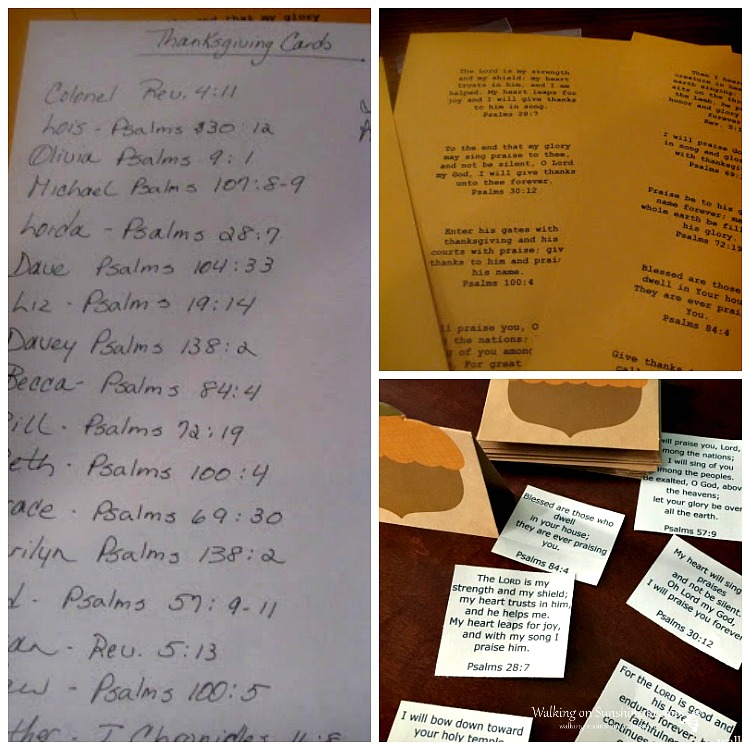 and that my glory
Thanksgiving Cards
Colonel Rev. 4:11
Lois - Psalms $30:12
Olivia Psalms 9:1
Michael Psalms 107:8-9
Lorda - Psalms 28:7
Dave Psalms 104:33
Liz - Psalms 19:14
Davey Psalms 138:2
Becca - Psalms 84:4
ill - Psalms 72:19
eth - Psalms 100:4
ace - Psalms 69:30
rilyn Psalms 138:2
- Psalms 57:9-11
an - Rev. 5:13
ew - Psalms 100:5
ther - I Chronicles
The Lord is my strength
and my shield; my heart
trusts in him, and I am
helped. My heart leaps for
joy and I will give thanks
to him in song.
Psalms 28:7
To the end that my glory
may sing praise to thee,
and not be silent, O Lord
my God, I will give thanks
unto thee forever.
Psalms 30:12
Enter his gates with
thanksgiving and his
courts with praise; giv
thanks to him and prai
his name.
Psalms 100:4
ll praise you, O
the nations;
of you among
For great
Then I hear
creature in heav
earth singing:
sits on the thr
the Lamb, be p
honor and glory
forever
Rev. 5:1
I will praise Go
in song and glor
with thanksgi
Psalms 69:
Praise be to his g
name forever; ma
whole earth be fill
his glory.
Psalms 72:19
Blessed are those
dwell in Your hou
They are ever prai
You.
Psalms 84:4
Give thanks
call
will praise you, Lord,
mong the nations;
I will sing of you
among the peoples.
Be exalted, O God, abov
the heavens;
let your glory be over
all the earth.
Psalms 57:9
Blessed are those who
dwell
in your house;
they are ever praising
you.
Psalms 84:4
My heart will sing
praises
and not be silent.
Oh Lord my God,
I will praise you forever
Psalms 30:12
The LORD is my
strength and my shield;
my heart trusts in him,
and he helps me.
My heart leaps for joy,
and with my song I
praise him.
Psalms 28:7
For the LORD is good and
his love
endures forever;
faithfulness
continues
I will bow down toward
your holy temple
Walking on Sunshine